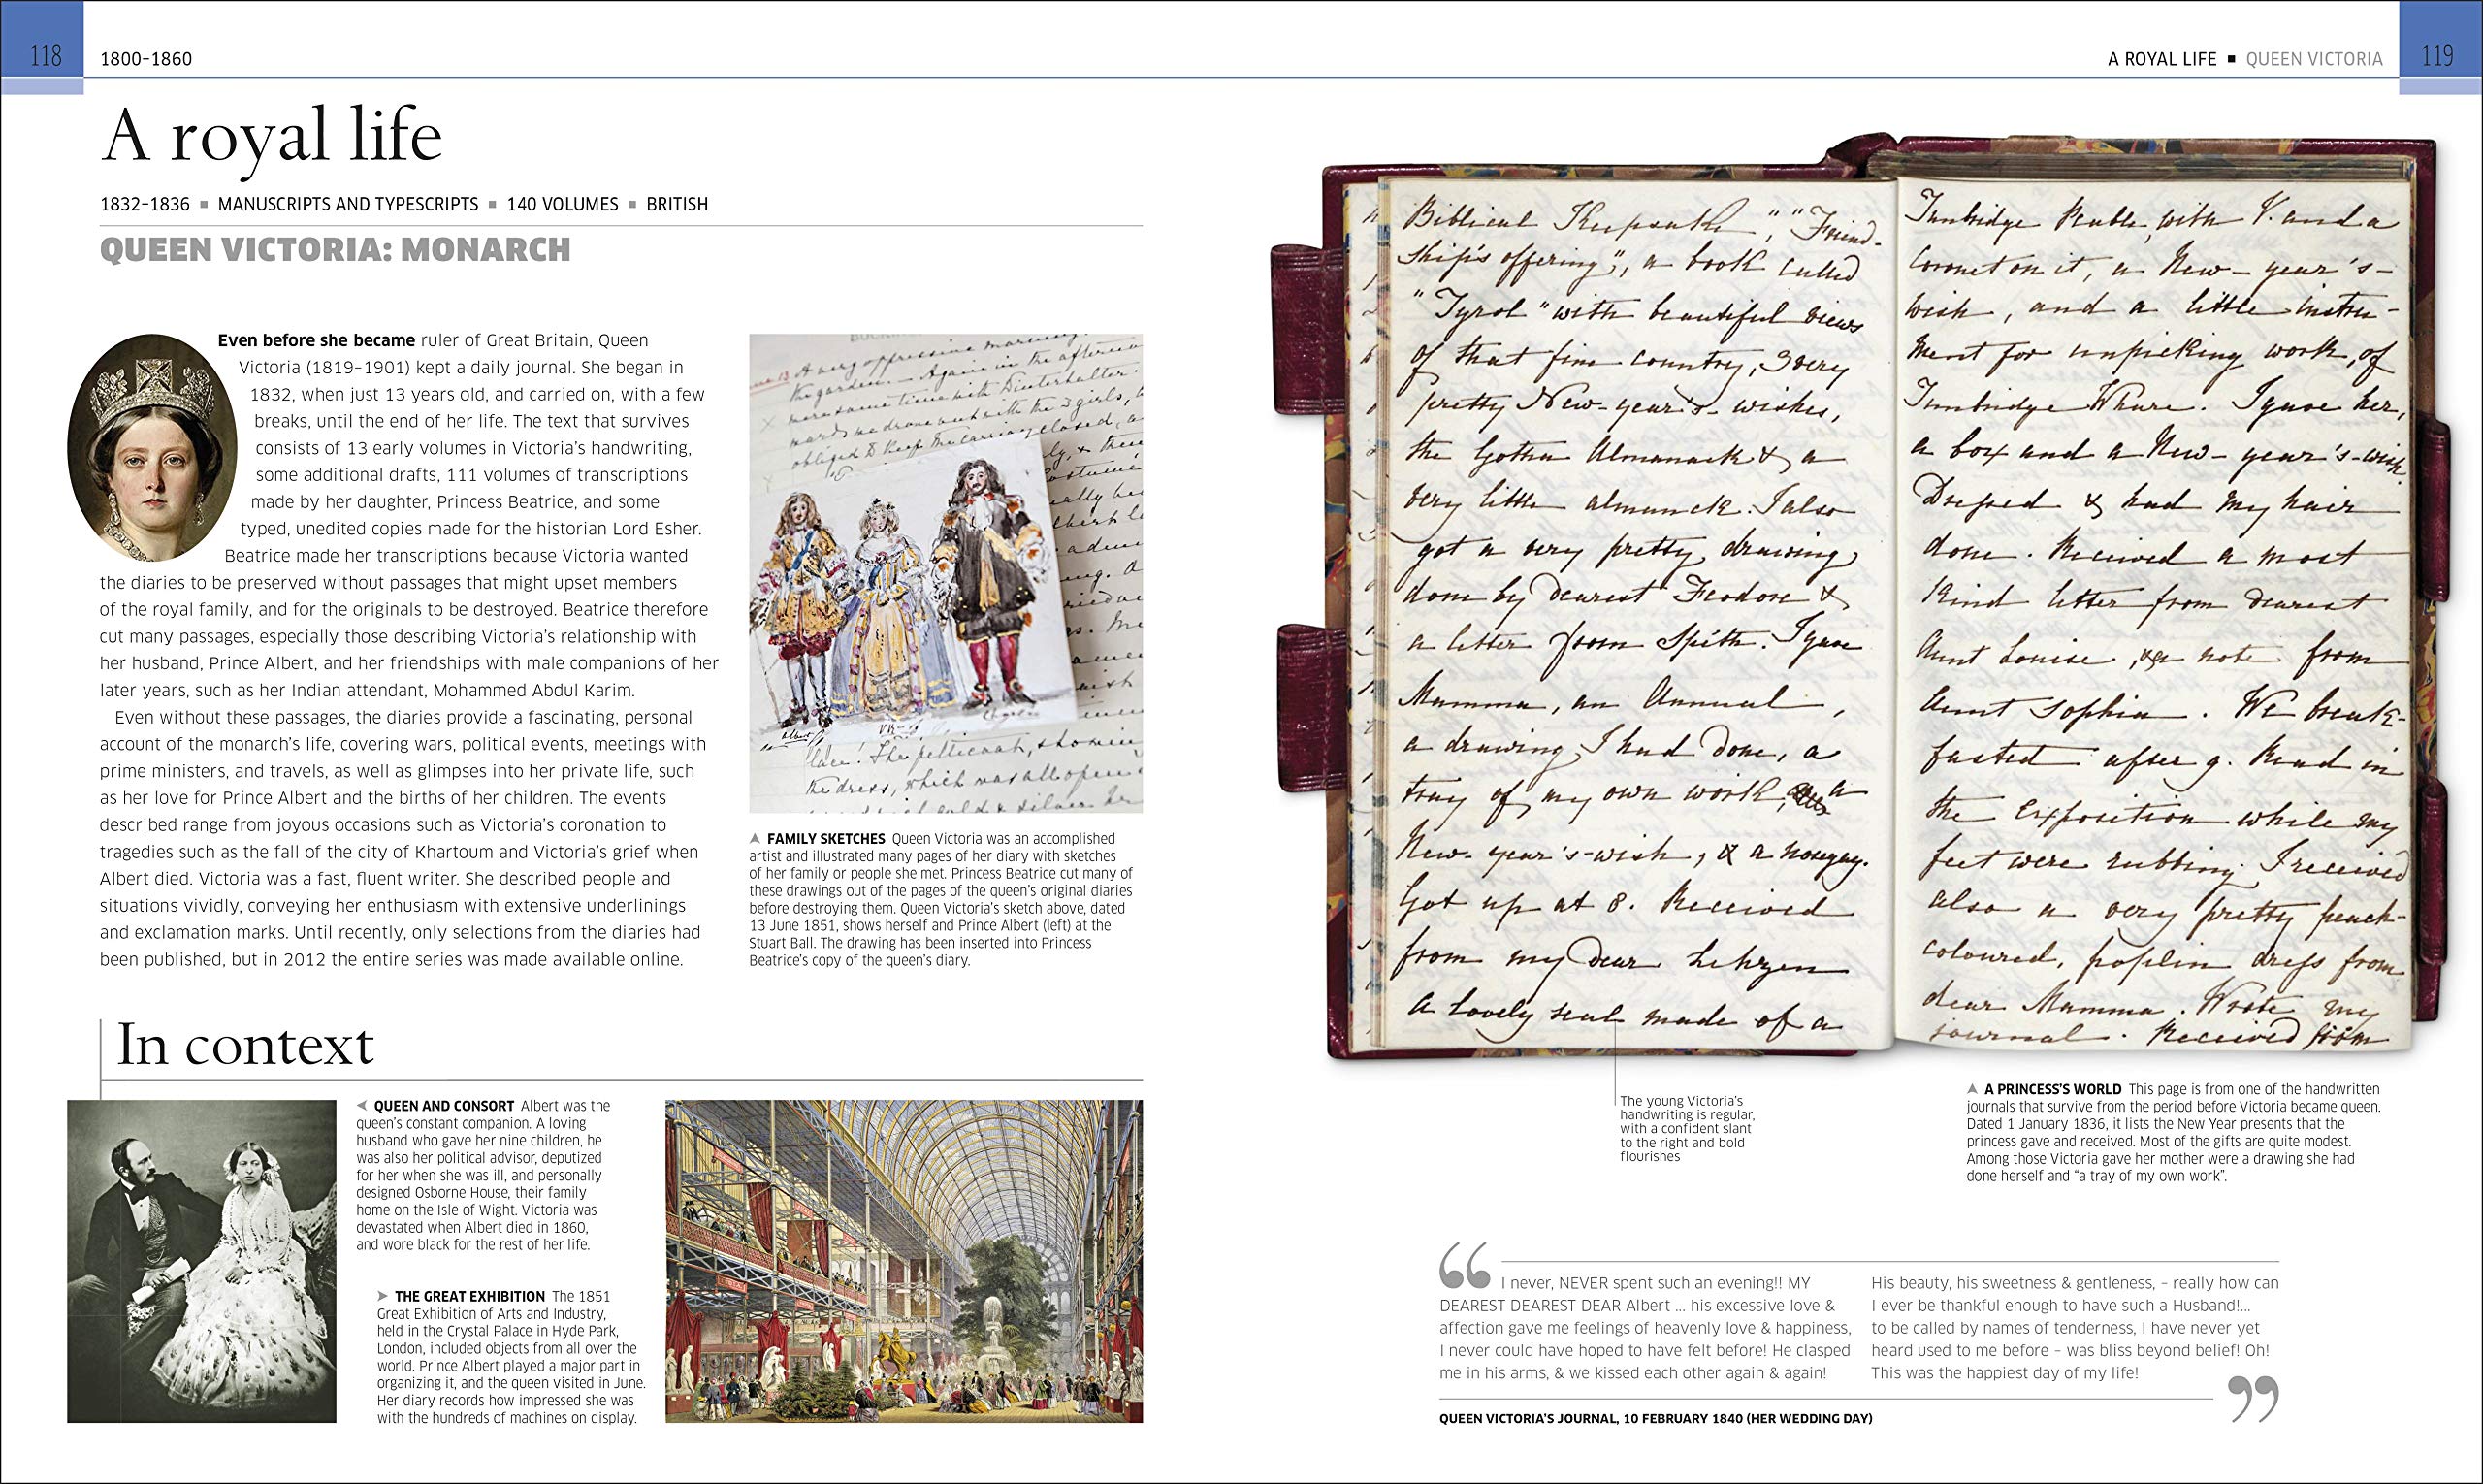 118
1800–1860
A royal life
1832–1836 ■ MANUSCRIPTS AND TYPESCRIPTS ■ 140 VOLUMES ■ BRITISH
QUEEN VICTORIA: MONARCH
Even before she became ruler of Great Britain, Queen
Victoria (1819–1901) kept a daily journal. She began in
1832, when just 13 years old, and carried on, with a few
breaks, until the end of her life. The text that survives
consists of 13 early volumes in Victoria's handwriting,
some additional drafts, 111 volumes of transcriptions
made by her daughter, Princess Beatrice, and some
typed, unedited copies made for the historian Lord Esher.
Beatrice made her transcriptions because Victoria wanted
the diaries to be preserved without passages that might upset members
of the royal family, and for the originals to be destroyed. Beatrice therefore
cut many passages, especially those describing Victoria's relationship with
her husband, Prince Albert, and her friendships with male companions of her
later years, such as her Indian attendant, Mohammed Abdul Karim.
Even without these passages, the diaries provide a fascinating, personal
account of the monarch's life, covering wars, political events, meetings with
prime ministers, and travels, as well as glimpses into her private life, such
as her love for Prince Albert and the births of her children. The events
described range from joyous occasions such as Victoria's coronation to
tragedies such as the fall of the city of Khartoum and Victoria's grief when
Albert died. Victoria was a fast, fluent writer. She described people and
situations vividly, conveying her enthusiasm with extensive underlinings
and exclamation marks. Until recently, only selections from the diaries had
been published, but in 2012 the entire series was made available online.
A very oppressive morning
the garden. — Again in the
more some time with Winterhalter.
wards we drove out with the 3 girls,
obliged to keep the carriage closed,
lace! The petticoat, showing
the dress, which was all open
FAMILY SKETCHES Queen Victoria was an accomplished
artist and illustrated many pages of her diary with sketches
of her family or people she met. Princess Beatrice cut many of
these drawings out of the pages of the queen's original diaries
before destroying them. Queen Victoria's sketch above, dated
13 June 1851, shows herself and Prince Albert (left) at the
Stuart Ball. The drawing has been inserted into Princess
Beatrice's copy of the queen's diary.
In context
QUEEN AND CONSORT Albert was the
queen's constant companion. A loving
husband who gave her nine children, he
was also her political advisor, deputized
for her when she was ill, and personally
designed Osborne House, their family
home on the Isle of Wight. Victoria was
devastated when Albert died in 1860,
and wore black for the rest of her life.
THE GREAT EXHIBITION The 1851
Great Exhibition of Arts and Industry,
held in the Crystal Palace in Hyde Park,
London, included objects from all over the
world. Prince Albert played a major part in
organizing it, and the queen visited in June.
Her diary records how impressed she was
with the hundreds of machines on display.
A ROYAL LIFE ■ QUEEN VICTORIA
119
Biblical Keepsake", "Friend-
ship's offering", a book called
"Tyrol" with beautiful views
of that fine country, 3 very
pretty New-year's-wishes,
the Gotha Almanack & a
very little almanack. I also
got a very pretty drawing
done by dearest Feodore &
a letter from Späth. I gave
Mamma, an Annual,
a drawing I had done, a
tray of my own work, a
New-year's-wish, & a nosegay.
Got up at 8. Received
from my dear Lehzen
a lovely seal made of a
Tunbridge Pebble, with V. and a
Coronet on it, a New-year's-
wish, and a little instru-
ment for unpicking work, of
Tunbridge Whare. I gave her,
a box and a New-year's-wish.
Dressed & had my hair
done. Received a most
kind letter from dearest
Aunt Louise, & a note from
Aunt Sophia. We break-
fasted after 9. Read in
the Exposition while my
feet were rubbing. I received
also a very pretty peach-
coloured, poplin dress from
dear Mamma. Wrote my
journal. Received from
The young Victoria's
handwriting is regular,
with a confident slant
to the right and bold
flourishes
A PRINCESS'S WORLD This page is from one of the handwritten
journals that survive from the period before Victoria became queen.
Dated 1 January 1836, it lists the New Year presents that the
princess gave and received. Most of the gifts are quite modest.
Among those Victoria gave her mother were a drawing she had
done herself and "a tray of my own work".
“ I never, NEVER spent such an evening!! MY
DEAREST DEAREST DEAR Albert ... his excessive love &
affection gave me feelings of heavenly love & happiness,
I never could have hoped to have felt before! He clasped
me in his arms, & we kissed each other again & again!
His beauty, his sweetness & gentleness, – really how can
I ever be thankful enough to have such a Husband!...
to be called by names of tenderness, I have never yet
heard used to me before – was bliss beyond belief! Oh!
This was the happiest day of my life! ”
QUEEN VICTORIA'S JOURNAL, 10 FEBRUARY 1840 (HER WEDDING DAY)